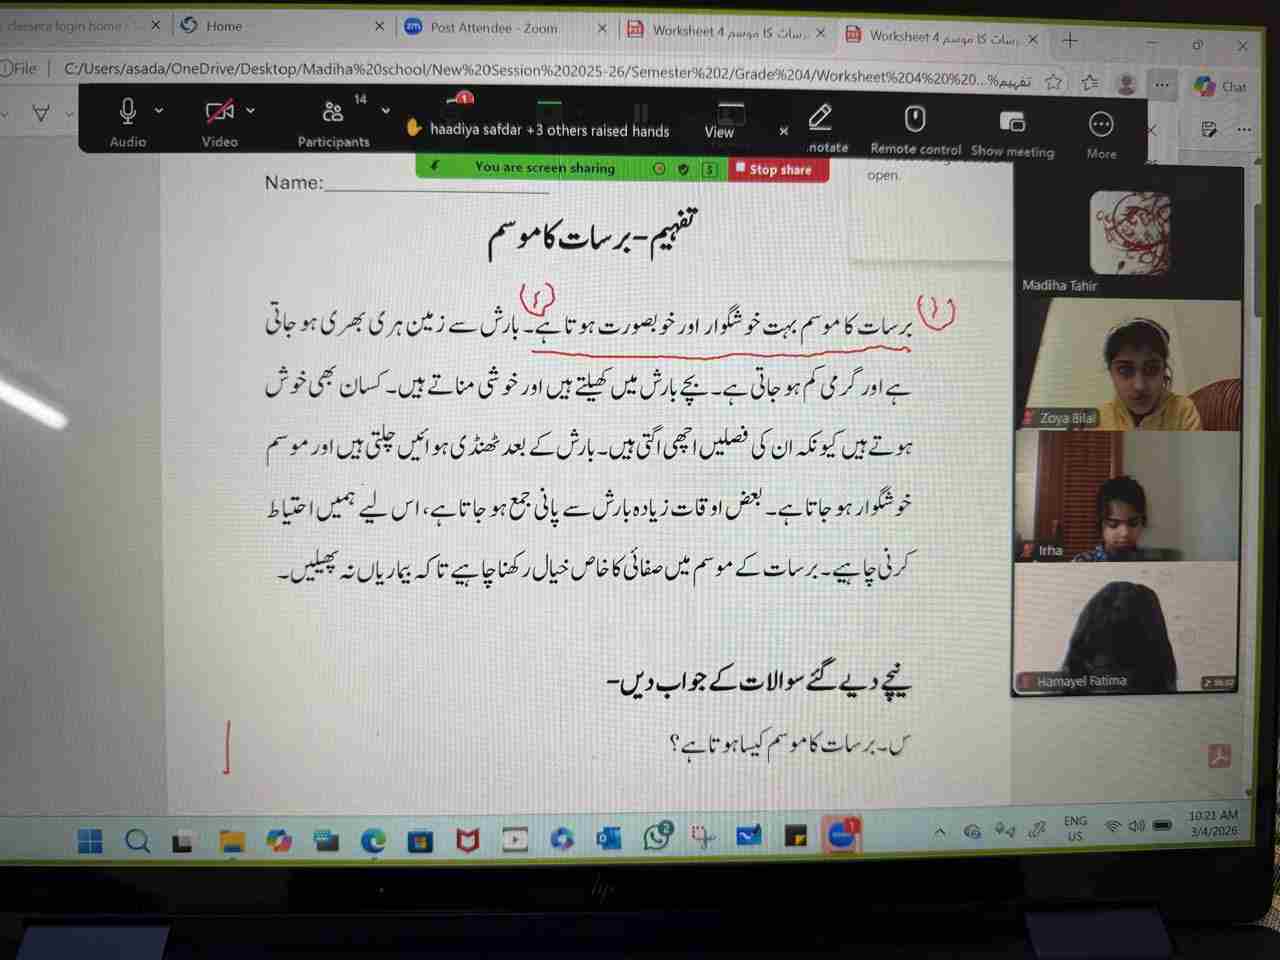 Home
Post Attendee - Zoom
Worksheet 4 برسات کا موسم
Worksheet 4 برسات کا موسم
File
C:/Users/asada/OneDrive/Desktop/Madiha%20school/New%20Session%202025-26/Semester%202/Grade%204/Worksheet%204%20%20...%تفہیم
Chat
Audio
Video
14
Participants
1
haadiya safdar +3 others raised hands
View
Remote control
Show meeting
More
You are screen sharing
Stop share
open.
Name:
تفہیم - برسات کا موسم
برسات کا موسم بہت خوشگوار اور خوبصورت ہوتا ہے۔ بارش سے زمین ہری بھری ہو جاتی
ہے اور گرمی کم ہو جاتی ہے۔ بچے بارش میں کھیلتے ہیں اور خوشی مناتے ہیں۔ کسان بھی خوش
ہوتے ہیں کیونکہ ان کی فصلیں اچھی اگتی ہیں۔ بارش کے بعد ٹھنڈی ہوائیں چلتی ہیں اور موسم
خوشگوار ہو جاتا ہے۔ بعض اوقات زیادہ بارش سے پانی جمع ہو جاتا ہے، اس لیے ہمیں احتیاط
کرنی چاہیے۔ برسات کے موسم میں صفائی کا خاص خیال رکھنا چاہیے تاکہ بیماریاں نہ پھیلیں۔
نیچے دیے گئے سوالات کے جواب دیں-
س۔ برسات کا موسم کیسا ہوتا ہے؟
Madiha Tahir
Zoya Bilal
Irha
Hamayel Fatima
ENG
US
10:21 AM
3/4/2026
hp